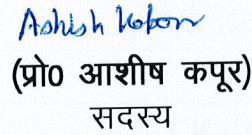 Ashish Kapoor
(प्रो0 आशीष कपूर)
सदस्य